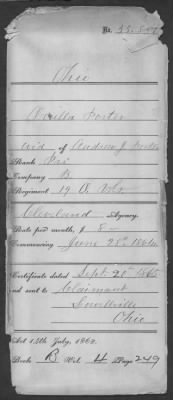 No. 55.847
Ohio
Orilla Porter
Wid of Andrew J. Porter
Rank Pri
Company B
Regiment 19 O. Vols
Cleveland Agency.
Rate per month, $ 8 —
Commencing June 28th 1864
Certificate dated Sept. 20th 1865
and sent to Claimant
Ohio
Act 14th July, 1862.
Book B Vol. 4 Page 249